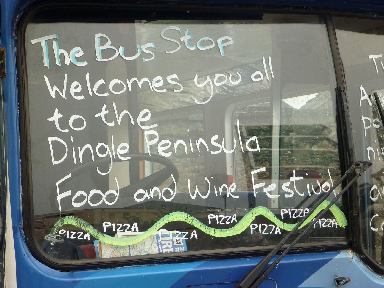 The Bus Stop
Welcomes you all
to the
Dingle Peninsula
Food and Wine Festival
PIZZA PIZZA PIZZA PIZZA PIZZA PIZZA PIZZA